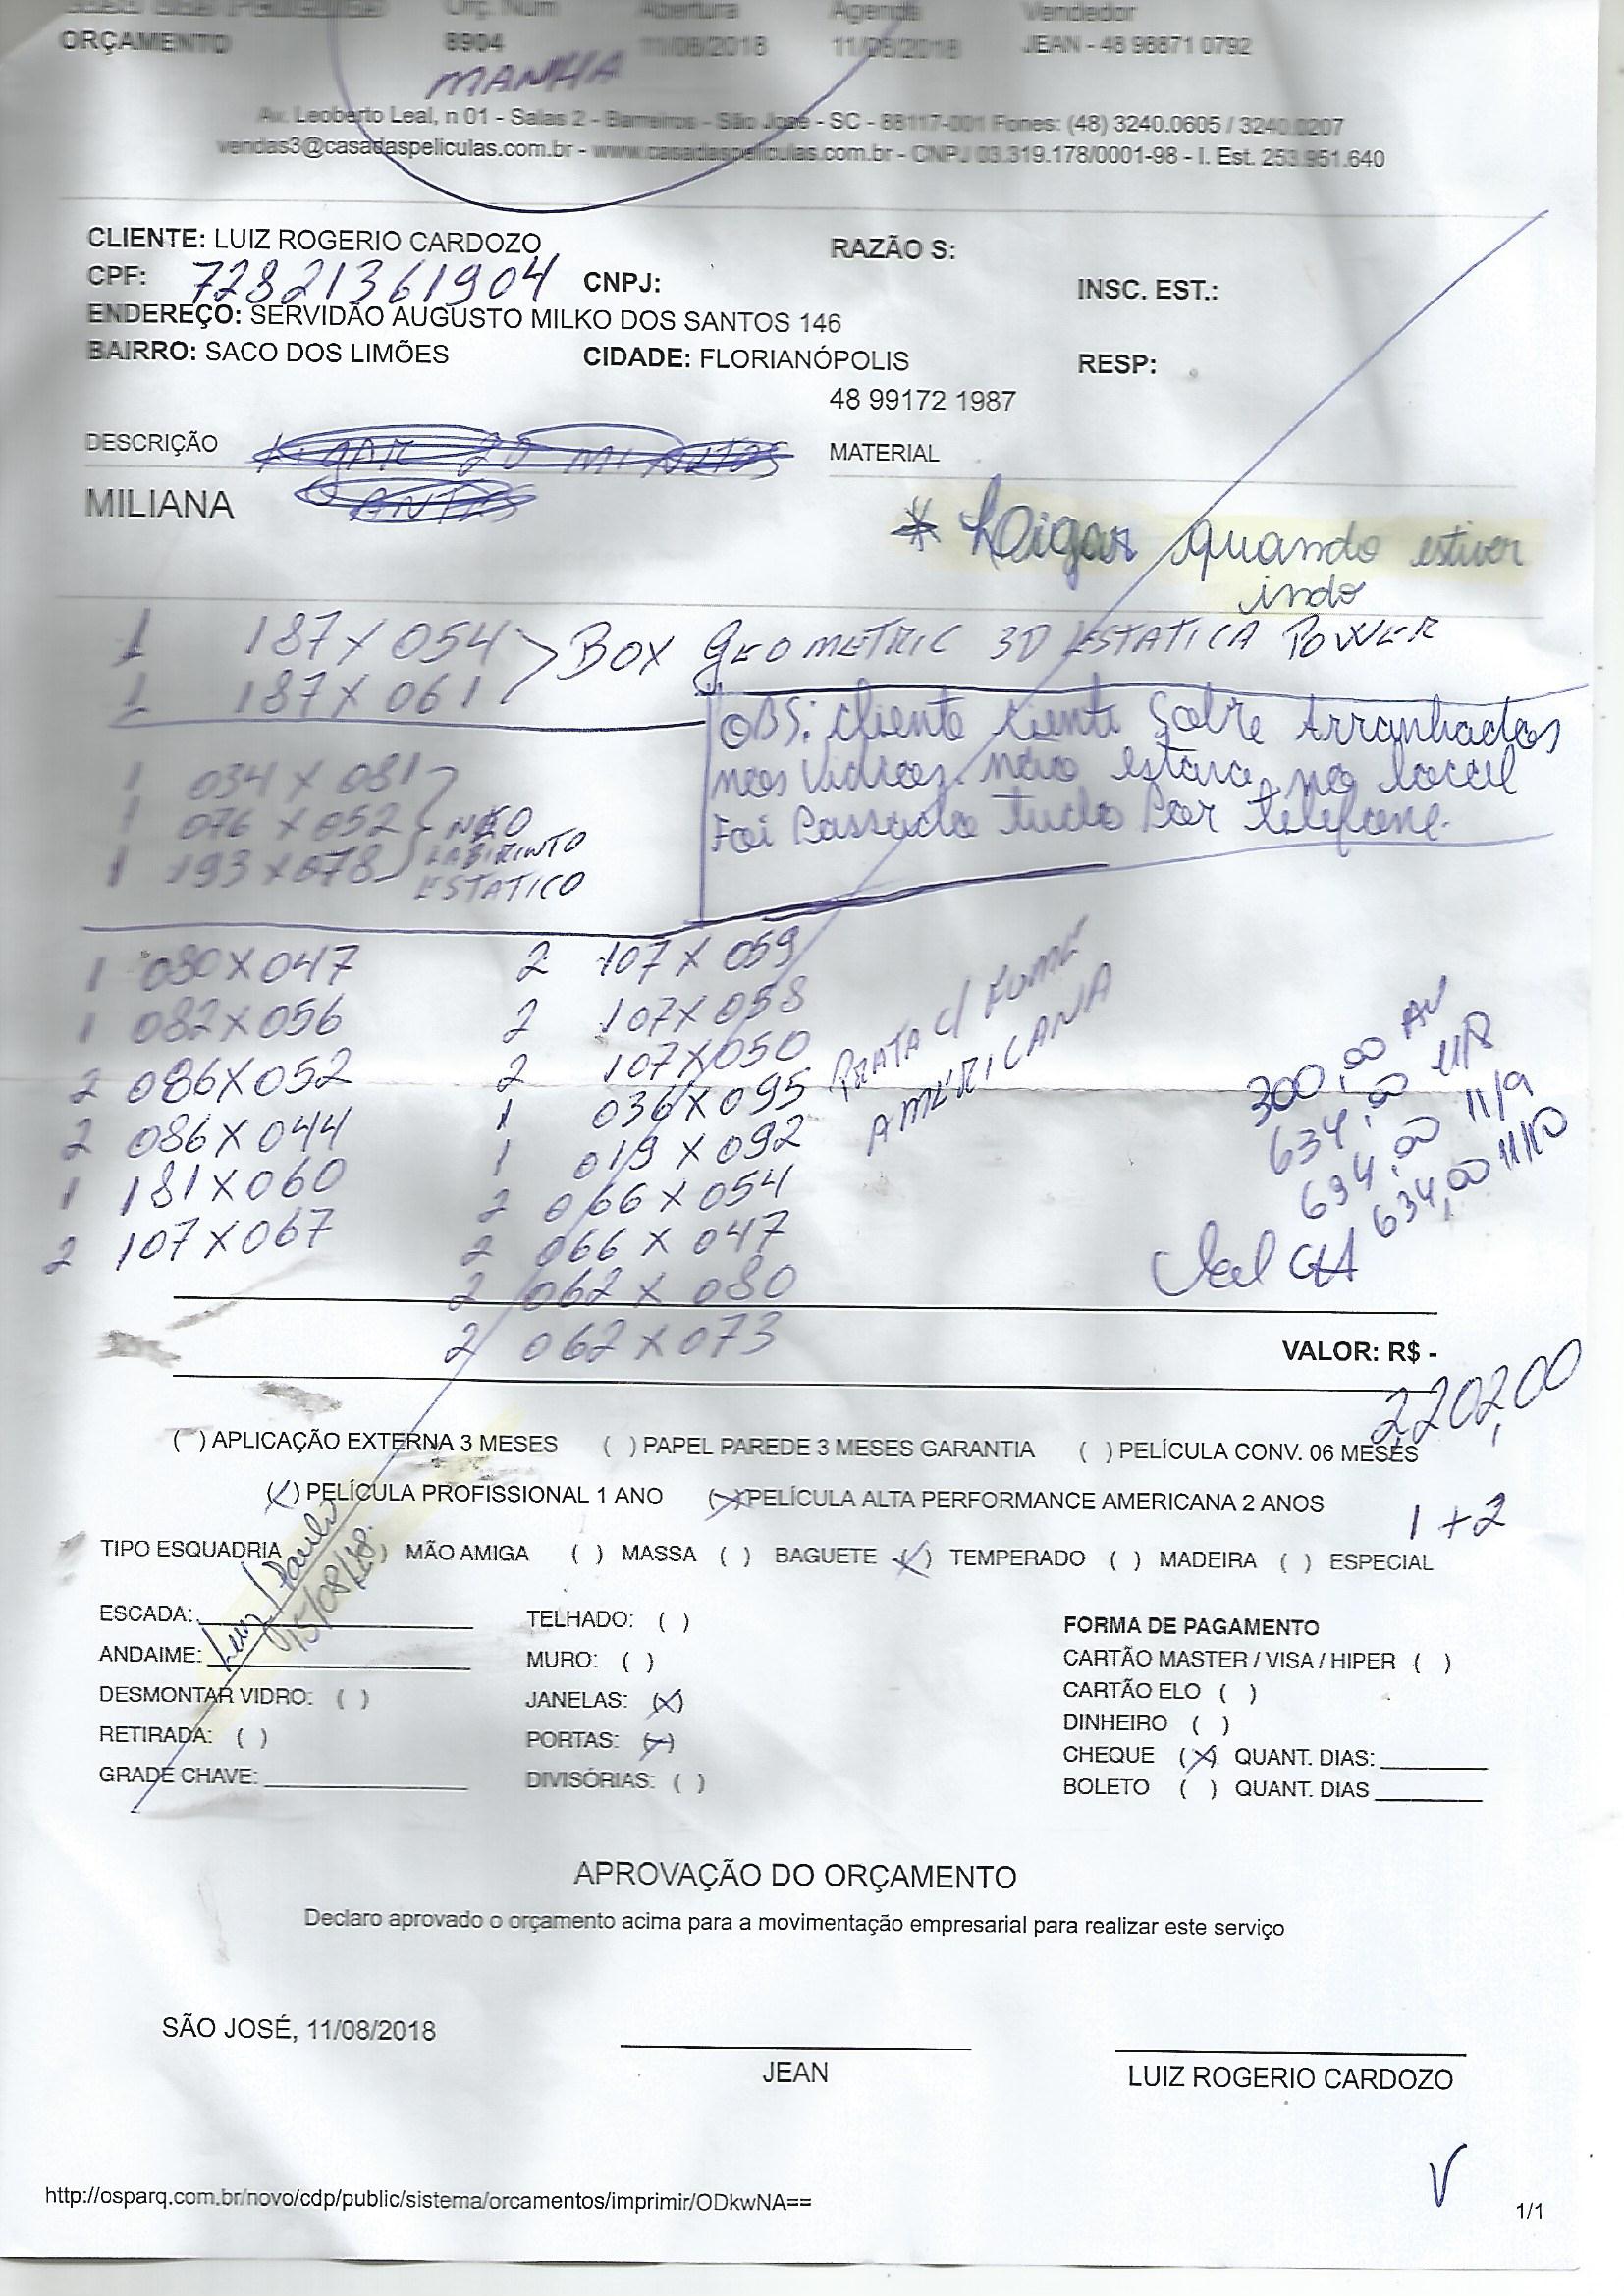 Orç. Num Abertura Agenda Vendedor
ORÇAMENTO 8904 11/08/2018 11/08/2018 JEAN - 48 98871 0792
MANHA
Av. Leoberto Leal, n 01 - Salas 2 - Barreiros - São José - SC - 88117-001 Fones: (48) 3240.0605 / 3240.0207
vendas3@casadaspeliculas.com.br - www.casadaspeliculas.com.br - CNPJ 03.319.178/0001-98 - I. Est. 253.951.640
CLIENTE: LUIZ ROGERIO CARDOZO RAZÃO S:
CPF: 72821361904 CNPJ: INSC. EST.:
ENDEREÇO: SERVIDÃO AUGUSTO MILKO DOS SANTOS 146
BAIRRO: SACO DOS LIMÕES CIDADE: FLORIANÓPOLIS RESP:
48 99172 1987
DESCRIÇÃO Ligar 20 minutos MATERIAL
MILIANA ANTES
* Ligar quando estiver
indo
1 187 X 054 > BOX GEOMETRIC 3D ESTATICA POWER
1 187 X 061
OBS: Cliente ciente Sobre Arranhados
nos Vidros. não estara no local
Foi Passado tudo Por telefone.
1 034 X 081
1 076 X 052 NEO
1 193 X 078 LABIRINTO
ESTATICO
1 080 X 047 2 107 X 059
1 082 X 056 2 107 X 058
2 086 X 052 2 107 X 050
2 086 X 044 1 036 X 095
1 181 X 060 1 019 X 092
2 107 X 067 2 066 X 054
2 066 X 047
2 062 X 080
2 062 X 073
PRATA c/ FUMÊ
AMERICANA
300,00 AV
634,00 11/8
634,00 11/9
634,00 11/10
CH
VALOR: R$ -
2202,00
( ) APLICAÇÃO EXTERNA 3 MESES ( ) PAPEL PAREDE 3 MESES GARANTIA ( ) PELÍCULA CONV. 06 MESES
(X) PELÍCULA PROFISSIONAL 1 ANO (X) PELÍCULA ALTA PERFORMANCE AMERICANA 2 ANOS
1 + 2
TIPO ESQUADRIA ) MÃO AMIGA ( ) MASSA ( ) BAGUETE (X) TEMPERADO ( ) MADEIRA ( ) ESPECIAL
Paulo
15/08/18.
ESCADA: TELHADO: ( ) FORMA DE PAGAMENTO
ANDAIME: MURO: ( ) CARTÃO MASTER / VISA / HIPER ( )
DESMONTAR VIDRO: ( ) JANELAS: (X) CARTÃO ELO ( )
RETIRADA: ( ) PORTAS: (X) DINHEIRO ( )
GRADE CHAVE: DIVISÓRIAS: ( ) CHEQUE (X) QUANT. DIAS:
BOLETO ( ) QUANT. DIAS
APROVAÇÃO DO ORÇAMENTO
Declaro aprovado o orçamento acima para a movimentação empresarial para realizar este serviço
SÃO JOSÉ, 11/08/2018
JEAN LUIZ ROGERIO CARDOZO
V
http://osparq.com.br/novo/cdp/public/sistema/orcamentos/imprimir/ODkwNA== 1/1